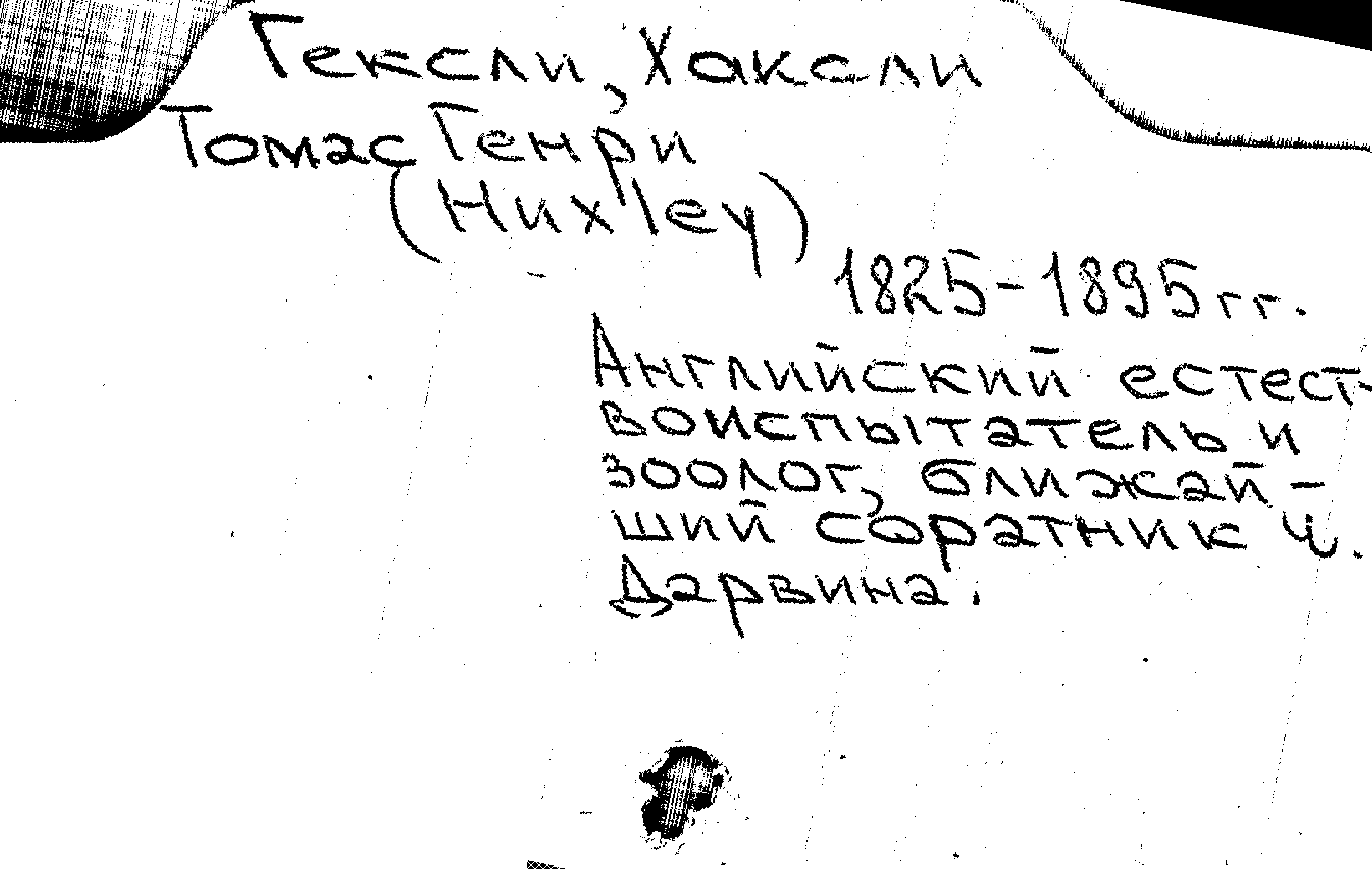 Гексли, Хаксли
Томас Генри
(Hиxley)
1825-1895 гг.
Английский естест-
воиспытатель и
зоолог, ближай-
ший соратник Ч.
Дарвина.